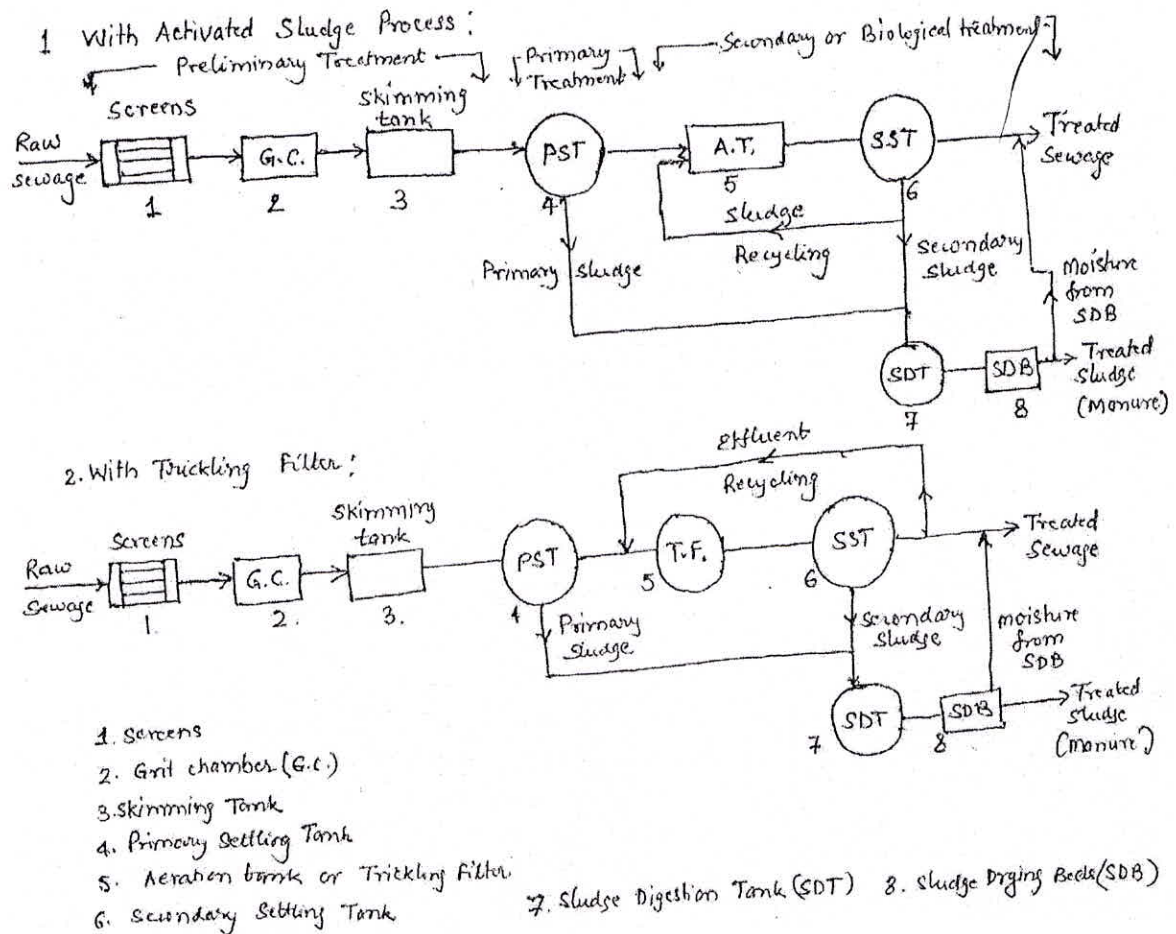 1 With Activated Sludge Process:
Preliminary Treatment
Primary
Treatment
Secondary or Biological treatment
Screens
Skimming
tank
Raw
sewage
G.C.
PST
A.T.
SST
Treated
sewage
1
2
3
4
5
6
Sludge
Recycling
Primary sludge
Secondary
sludge
Moisture
from
SDB
SDT
SDB
Treated
sludge
(Manure)
7
8
2. With Trickling Filter:
Effluent
Recycling
Screens
Skimming
tank
Raw
Sewage
G.C.
PST
T.F.
SST
Treated
Sewage
1.
2.
3.
4
5
6
Primary
sludge
Secondary
sludge
moisture
from
SDB
SDT
SDB
Treated
sludge
(Manure)
7
8
1. Screens
2. Grit chamber (G.C.)
3. Skimming Tank
4. Primary Settling Tank
5. Aeration tank or Trickling Filter.
6. Secondary Settling Tank
7. Sludge Digestion Tank (SDT) 8. Sludge Drying Beds (SDB)